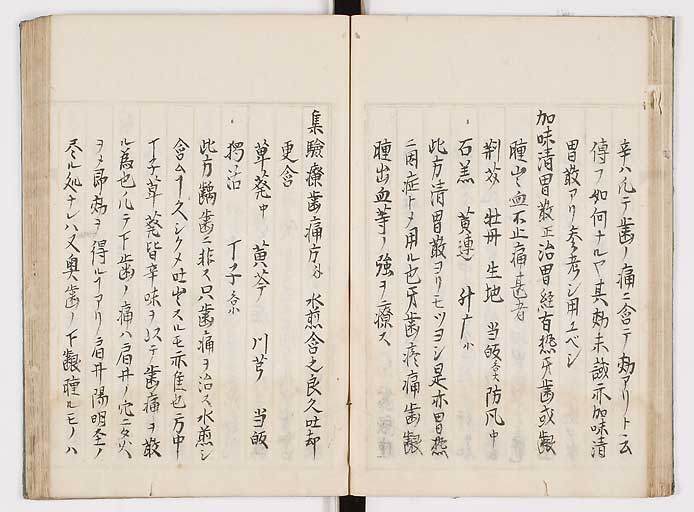 辛ハ凡テ歯ノ痛ニ含テ効アリト云
傳フ如何ナルヤ其効未試亦加味清
胃散アリ参考シ用ユベシ
加味清胃散 正治胃経有熱牙歯或齦
腫出血不止痛甚者
荆芥 牡丹 生地 當皈 各大 防風 中
石羔 黄連 升广 小
此方清胃散ヨリモツヨシ是亦胃熱
ニ因症トメ用ル也牙歯疼痛歯齦
腫出血等ノ強ヲ療ス
集驗療歯痛方 水煎含之良久吐却
更含
蓽茇 中 黄芩 川芎 當皈
獨活 丁子 各小
此方齲歯ニ非ス只歯痛ヲ治ス水煎シ
含ム久シクメ吐出スルモ亦佳也方中
丁子蓽茇皆辛味ヲ以テ歯痛ヲ散
ル為也凡テ下歯ノ痛ハ肩井ノ穴ニ灸
ヲメ即効ヲ得ルアリ肩井陽明
尽ル処ナレハ又奥歯ノ下齦腫ルモノハ